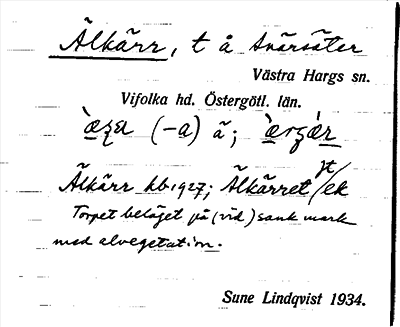 Älkärr, t å Svärsäter
Västra Hargs sn.
Vifolka hd. Östergötl. län.
(-a) ä;
Älkärr kb. 1927; Älkärret jt/ek
Torpet beläget på (vid) sank mark
med alvegetation.
Sune Lindqvist 1934.